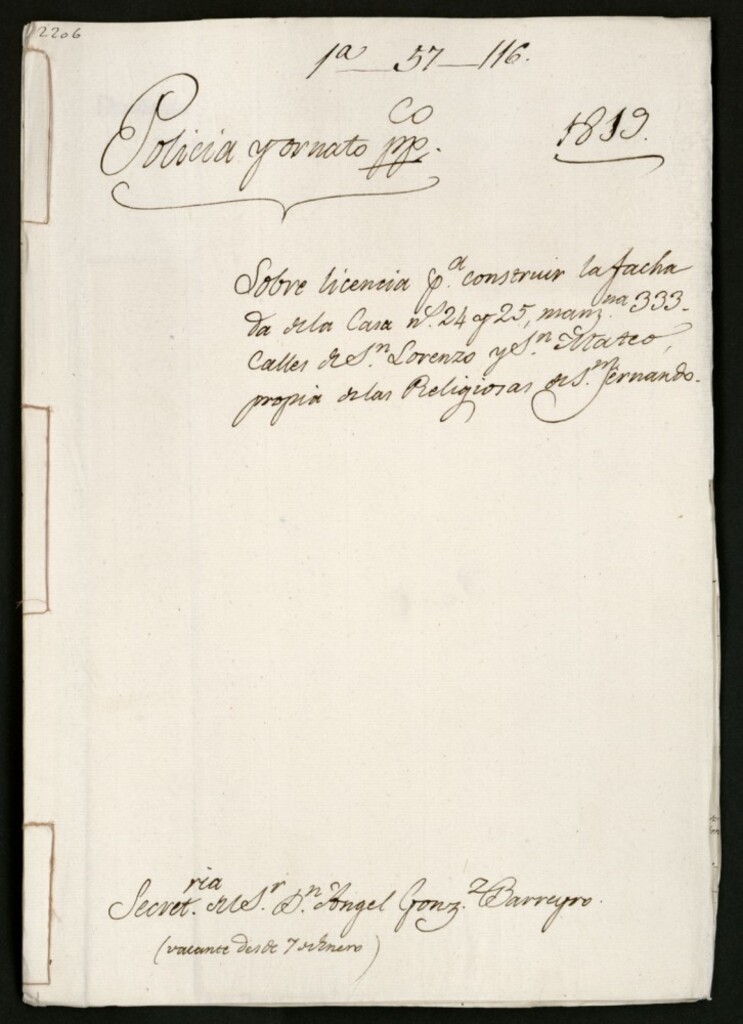 2206
1ª — 57 — 116.
Policia y ornato pp.co
1819.
Sobre licencia p.ª construir la facha
da de la Casa n.s 24 y 25, manz.na 333.
Calles de S.n Lorenzo y S.n Mateo,
propia de las Religiosas de S.n Fernando.
Secret.ria del S.r D.n Angel Gonz.z Barreyro.
(vacante desde 7 de Enero)